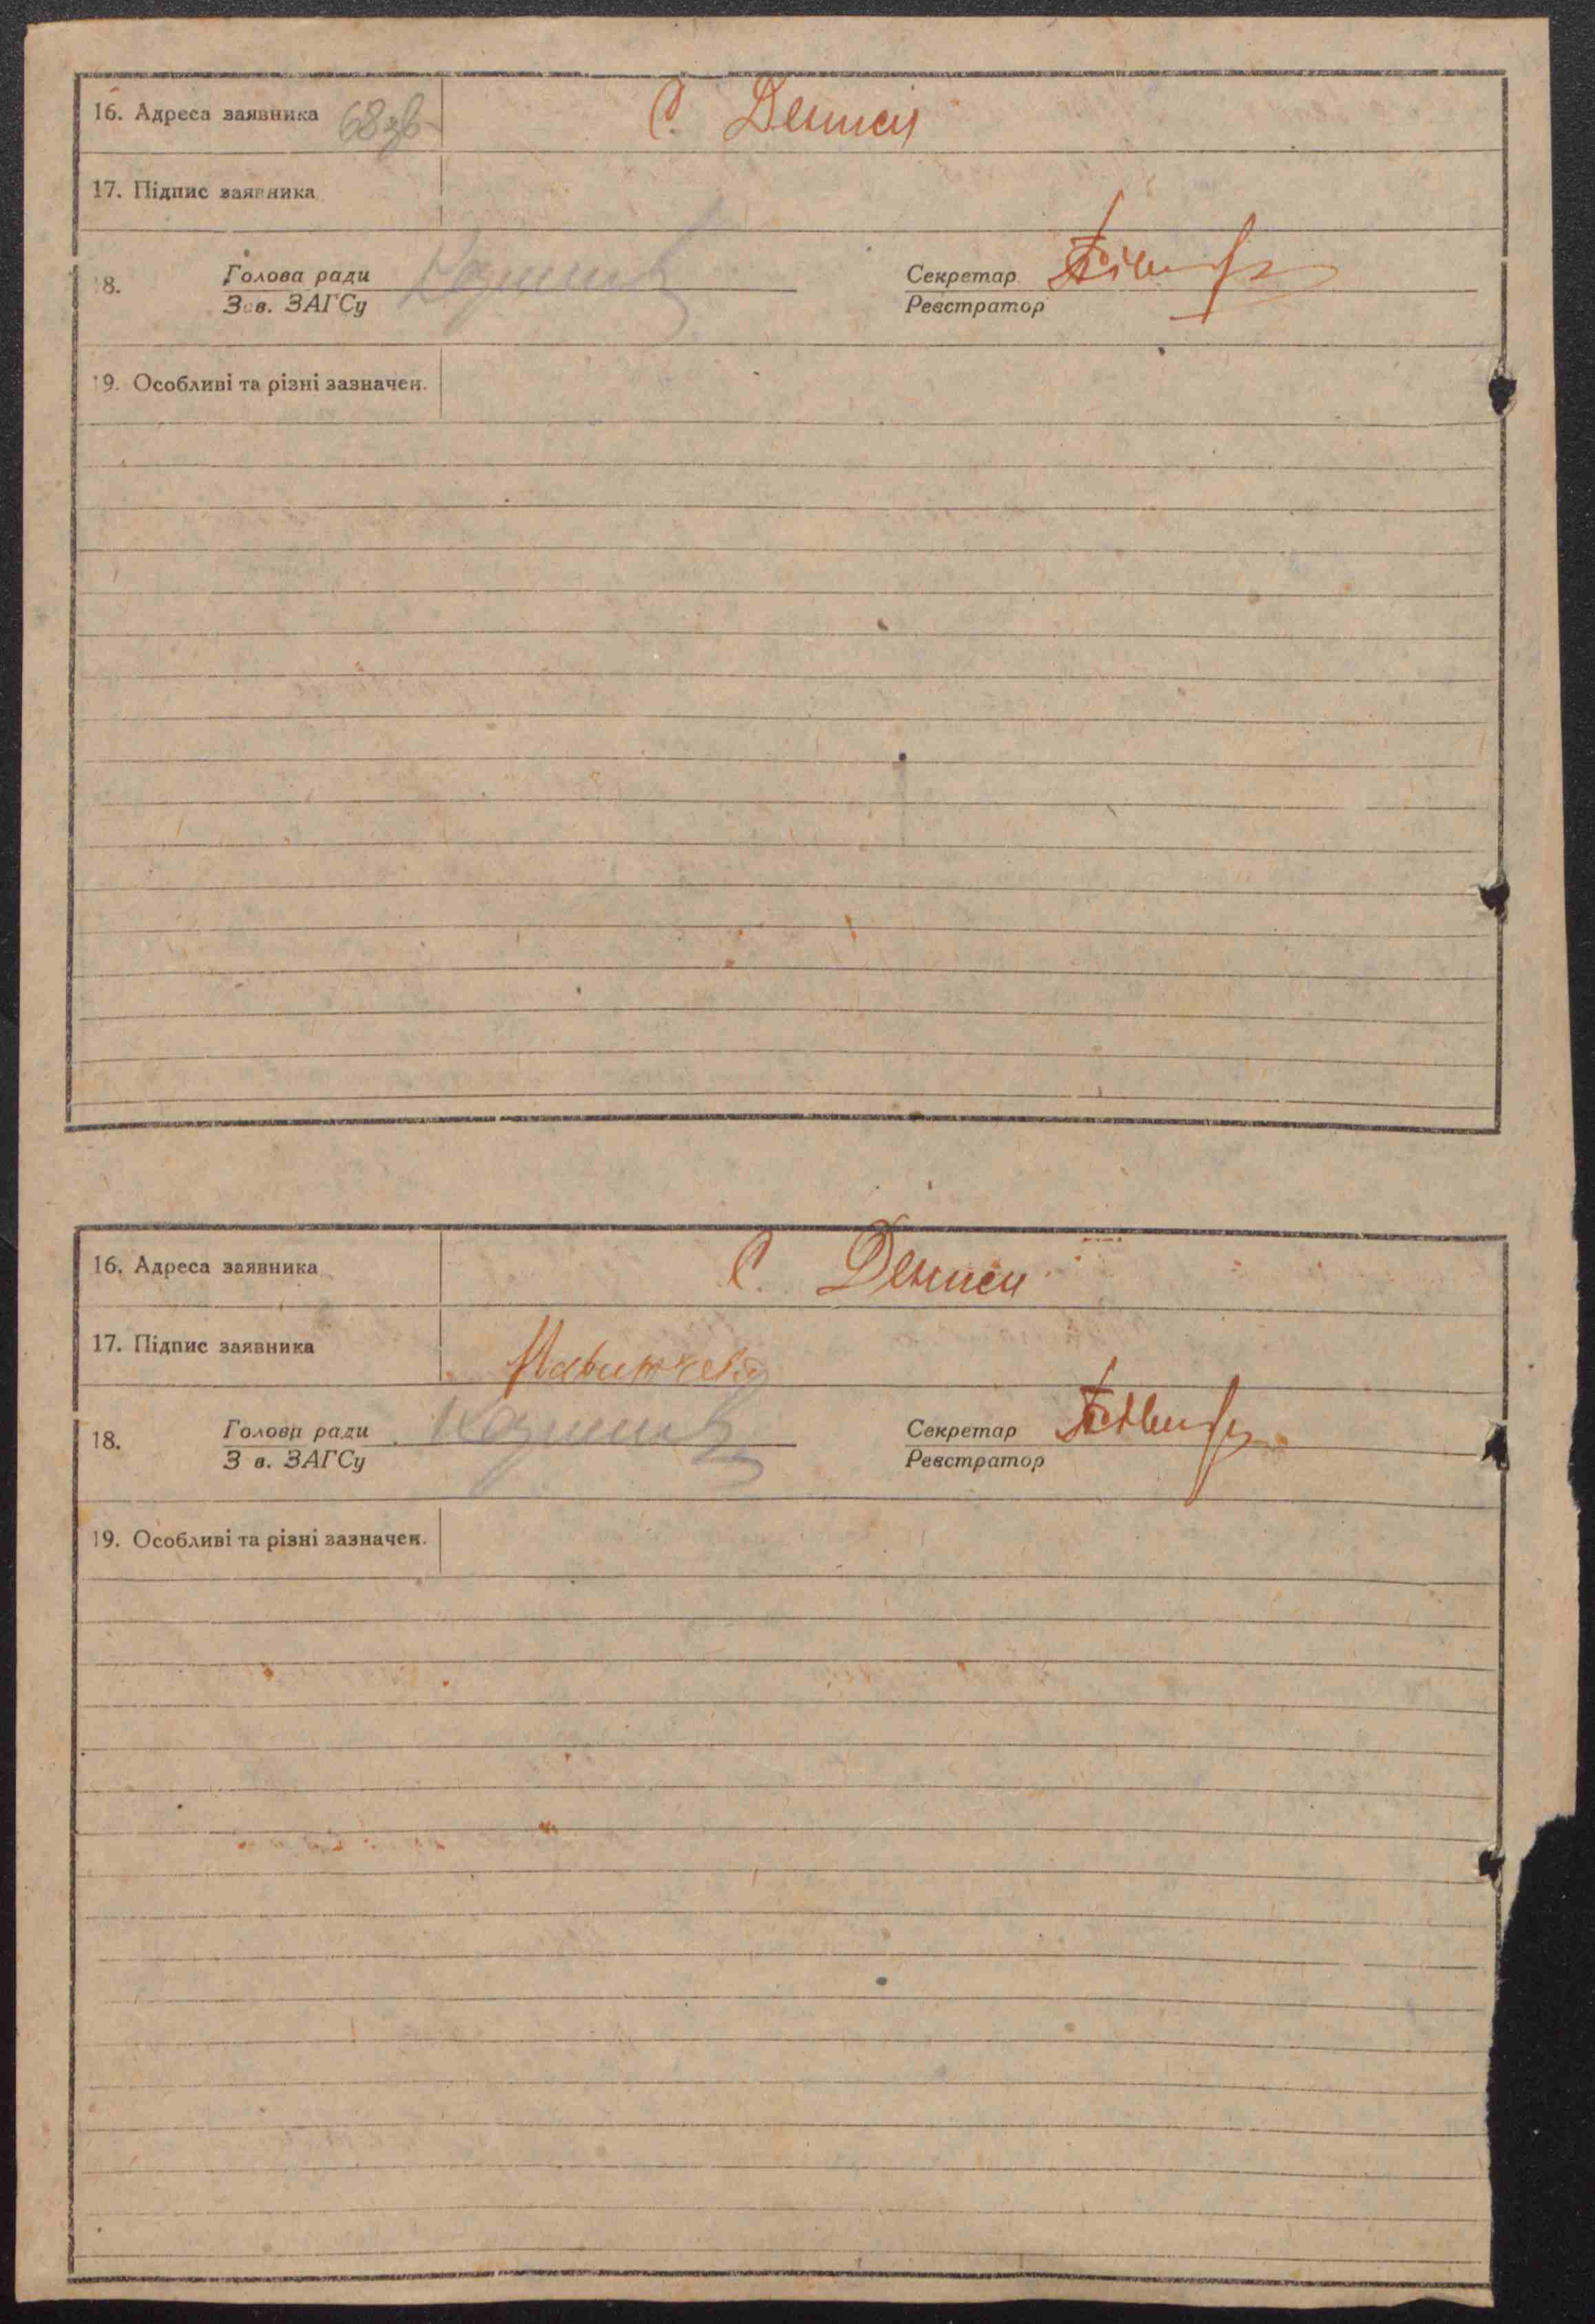 16. Адреса заявника 68зв С. Дениси
17. Підпис заявника
18. Голова ради Секретар
Зав. ЗАГСу Реєстратор
19. Особливі та різні зазначен.
16. Адреса заявника С. Дениси
17. Підпис заявника
18. Голова ради Секретар
Зав. ЗАГСу Реєстратор
19. Особливі та різні зазначен.